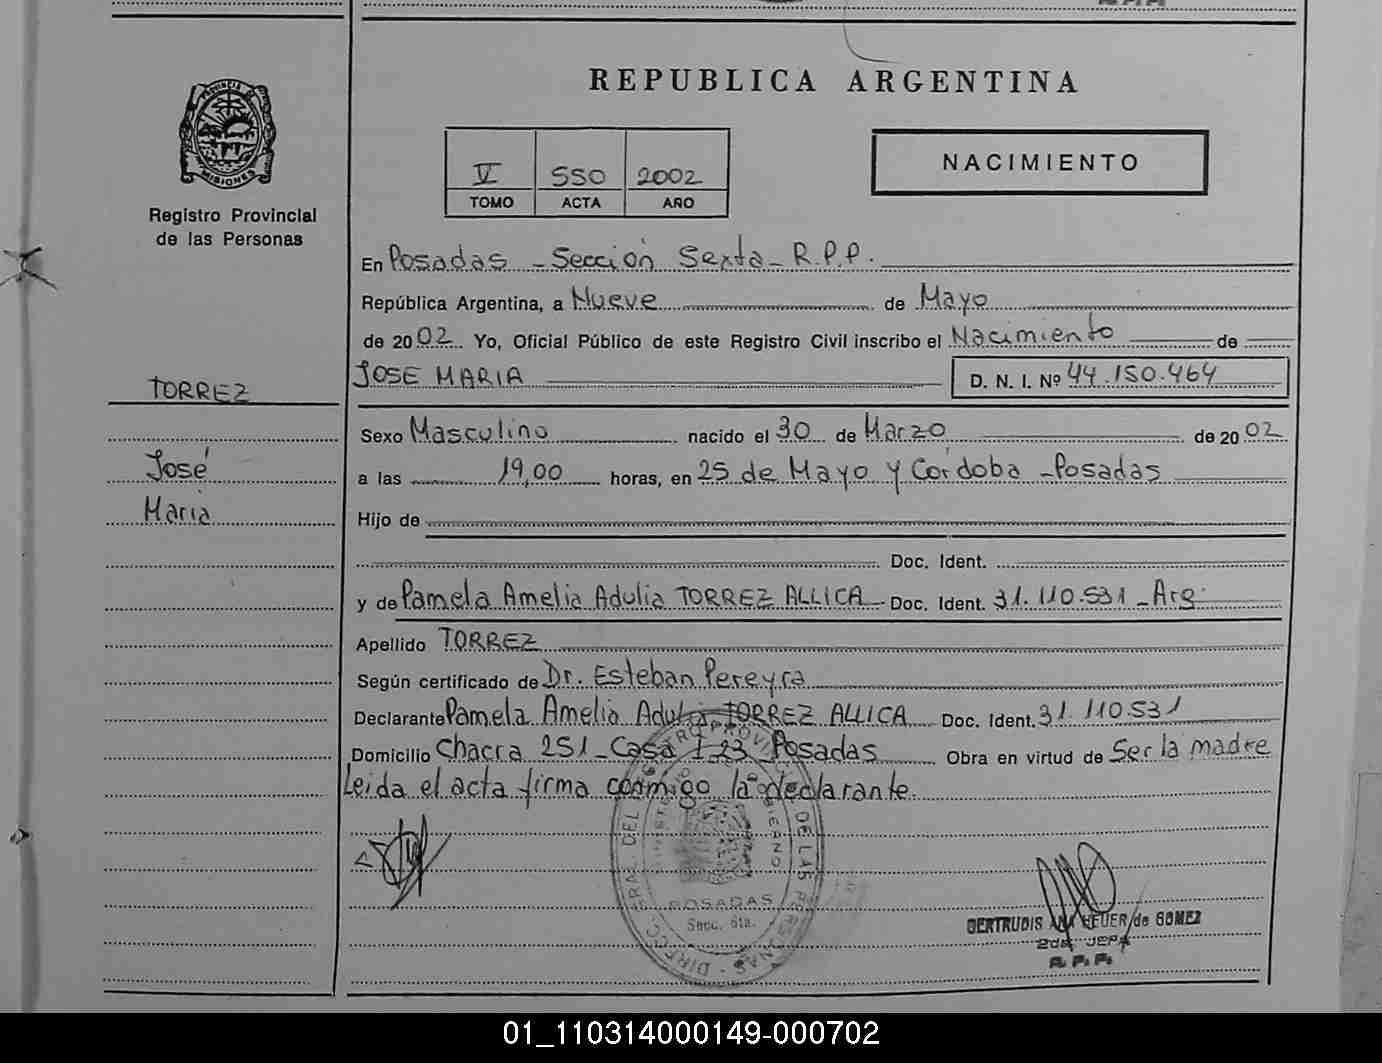 REPUBLICA ARGENTINA
PROVINCIA DE
MISIONES
Registro Provincial
de las Personas
V 550 2002
TOMO ACTA AÑO
NACIMIENTO
En Posadas - Sección Sexta - R.P.P.
República Argentina, a Nueve de Mayo
de 2002 Yo, Oficial Público de este Registro Civil inscribo el Nacimiento de
JOSE MARIA D. N. I. Nº 44.150.464
TORREZ
José
Maria
Sexo Masculino nacido el 30 de Marzo de 2002
a las 19,00 horas, en 25 de Mayo y Córdoba - Posadas
Hijo de
Doc. Ident.
y de Pamela Amelia Adulia TORREZ ALLICA Doc. Ident. 31.110.531 - Arg.
Apellido TORREZ
Según certificado de Dr. Esteban Pereyra
Declarante Pamela Amelia Adulia TORREZ ALLICA Doc. Ident. 31.110531
Domicilio Chacra 251 - Casa 123 Posadas Obra en virtud de Ser la madre
Leida el acta firma conmigo la declarante.
DIRECC. GRAL. DEL REGISTRO PROVINCIAL DE LAS PERSONAS
MINISTERIO GOBIERNO
POSADAS
Secc. 6ta.
GERTRUDIS ANA HEUER de GOMEZ
2da JEFA
R.P.P.
01_110314000149-000702